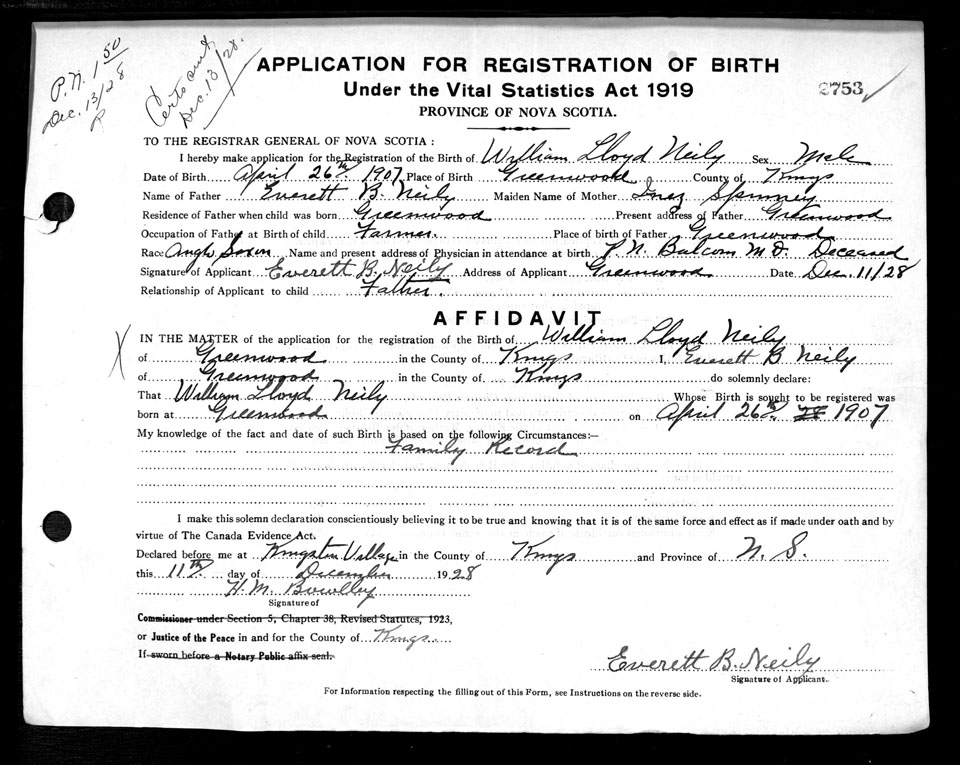 P.N. 1 50
Dec. 13/28
R
Dec. 13/28.
APPLICATION FOR REGISTRATION OF BIRTH
Under the Vital Statistics Act 1919
2753 ✓
PROVINCE OF NOVA SCOTIA.
TO THE REGISTRAR GENERAL OF NOVA SCOTIA:
I hereby make application for the Registration of the Birth of William Lloyd Neily Sex Male
Date of Birth April 26th 1907 Place of Birth Greenwood County of Kings
Name of Father Everett B. Neily Maiden Name of Mother Inez Spinney
Residence of Father when child was born Greenwood Present address of Father Greenwood
Occupation of Father at Birth of child Farmer. Place of birth of Father Greenwood
Race Anglo Saxon Name and present address of Physician in attendance at birth P. N. Balcom M.D. Deceased
Signature of Applicant Everett B. Neily Address of Applicant Greenwood Date Dec. 11/28
Relationship of Applicant to child Father.
AFFIDAVIT
IN THE MATTER of the application for the registration of the Birth of William Lloyd Neily
of Greenwood in the County of Kings I, Everett B Neily
of Greenwood in the County of Kings do solemnly declare:
That William Lloyd Neily Whose Birth is sought to be registered was
born at Greenwood on April 26th 1907
My knowledge of the fact and date of such Birth is based on the following Circumstances:—
Family Record
I make this solemn declaration conscientiously believing it to be true and knowing that it is of the same force and effect as if made under oath and by
virtue of The Canada Evidence Act.
Declared before me at Kingston Village in the County of Kings and Province of N. S.
this 11th day of December 1928
H. M.
Signature of
Commissioner under Section 5, Chapter 38, Revised Statutes, 1923,
or Justice of the Peace in and for the County of Kings
If sworn before a Notary Public affix seal.
Everett B. Neily
Signature of Applicant.
For Information respecting the filling out of this Form, see Instructions on the reverse side.